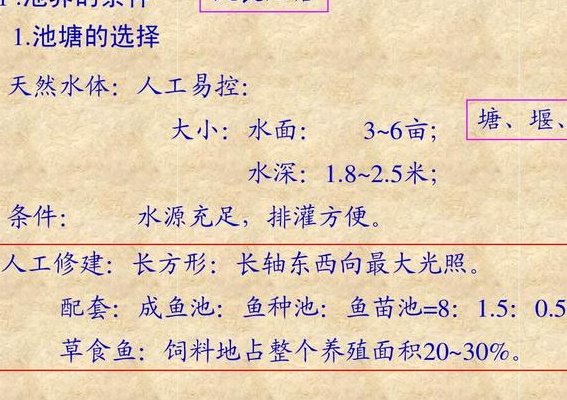 1.池塘的选择
天然水体：人工易控：
大小：水面： 3~6亩；
塘、堰、
水深：1.8~2.5米；
条件： 水源充足，排灌方便。
人工修建：长方形：长轴东西向最大光照。
配套：成鱼池：鱼种池：鱼苗池=8：1.5：0.5
草食鱼：饲料地占整个养殖面积20~30%。